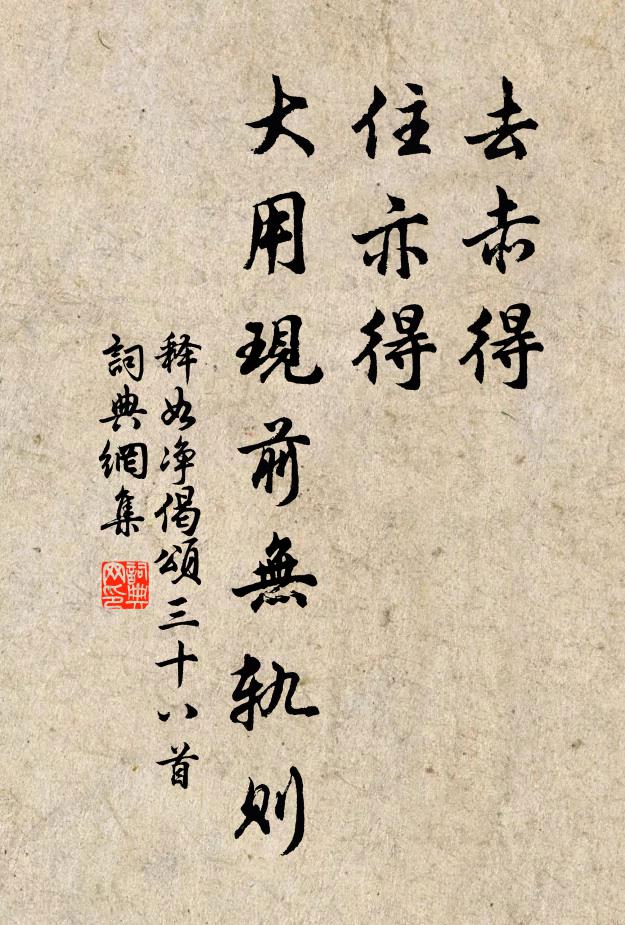 去亦得
住亦得
大用現前無軌則
释如净偈頌三十八首
詞典網集
詞典网印